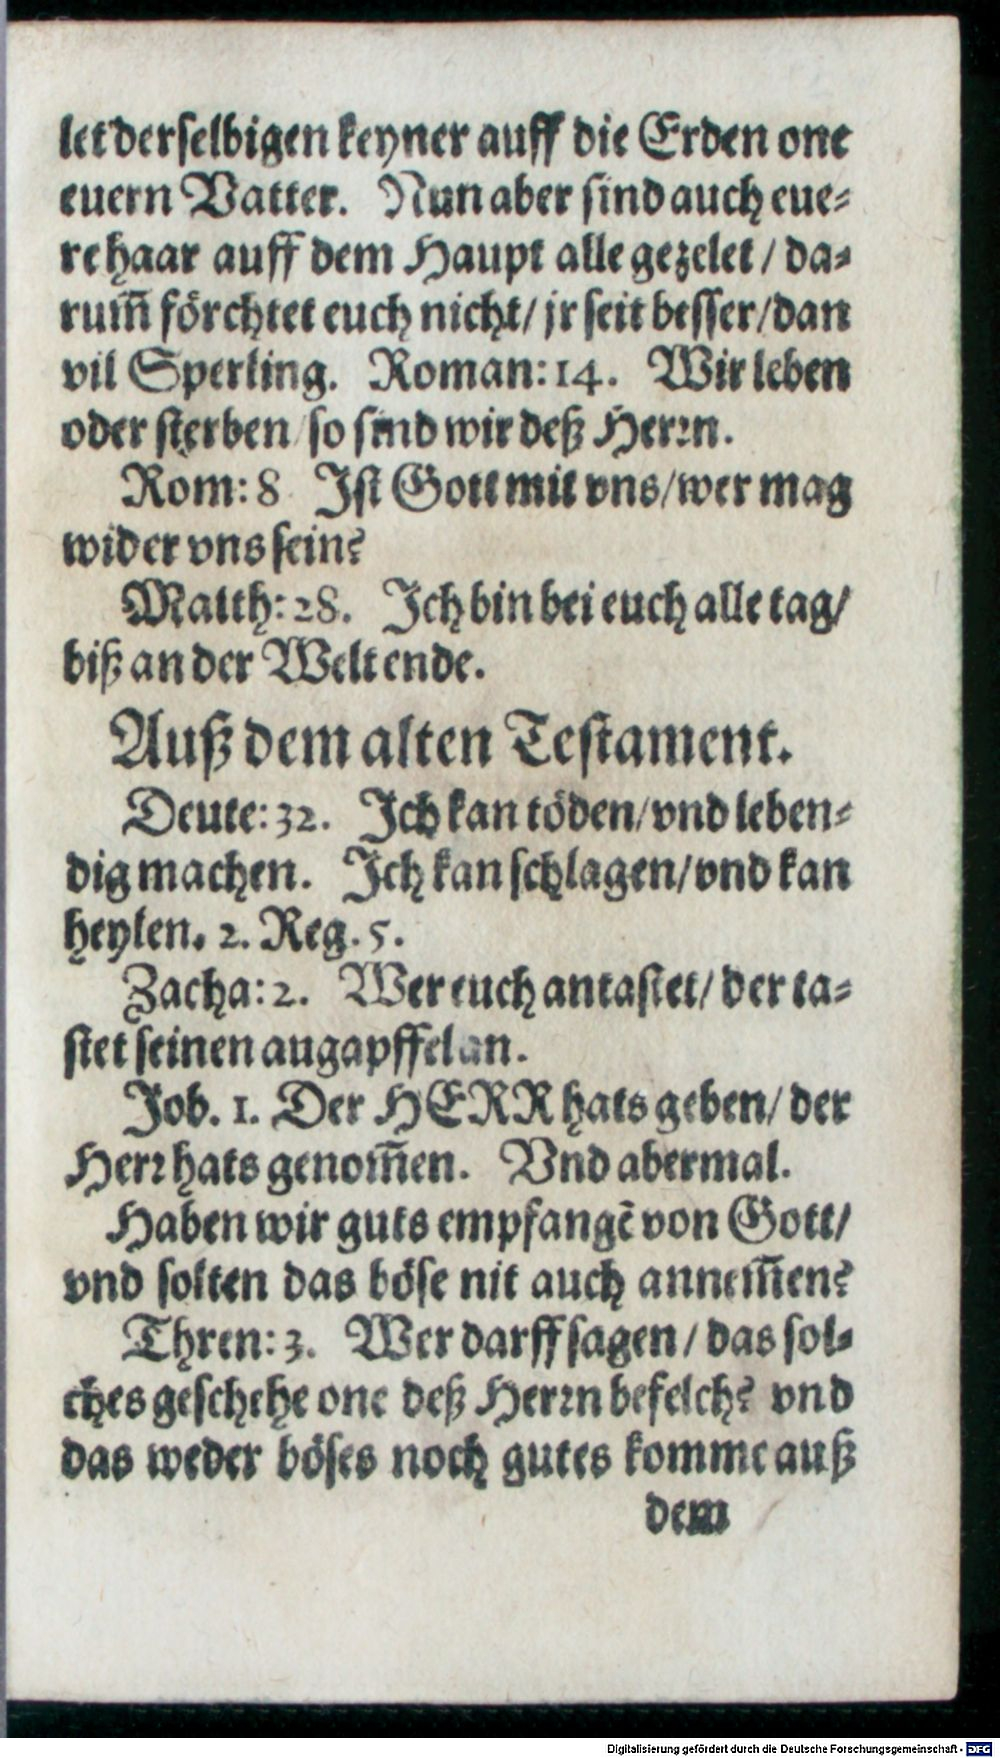 let derselbigen keyner auff die Erden one
euern Vatter. Nun aber sind auch eue-
re haar auff dem Haupt alle gezelet / da-
rum̃ förchtet euch nicht / jr seit besser / dan
vil Sperling. Roman: 14. Wir leben
oder sterben / so sind wir deß Herrn.
Rom: 8 Ist Gott mit vns / wer mag
wider vns sein?
Matth: 28. Ich bin bei euch alle tag /
biß an der Welt ende.
Auß dem alten Testament.
Deute: 32. Ich kan töden / vnd leben-
dig machen. Ich kan schlagen / vnd kan
heylen. 2. Reg. 5.
Zacha: 2. Wer euch antastet / der ta-
stet seinen augapffel an.
Job. 1. Der HERR hats geben / der
Herr hats genom̃en. Vnd abermal.
Haben wir guts empfangẽ von Gott /
vnd solten das böse nit auch annem̃en?
Thren: 3. Wer darff sagen / das sol-
ches geschehe one deß Herrn befelch? vnd
das weder böses noch gutes komme auß
dem
Digitalisierung gefördert durch die Deutsche Forschungsgemeinschaft - DFG